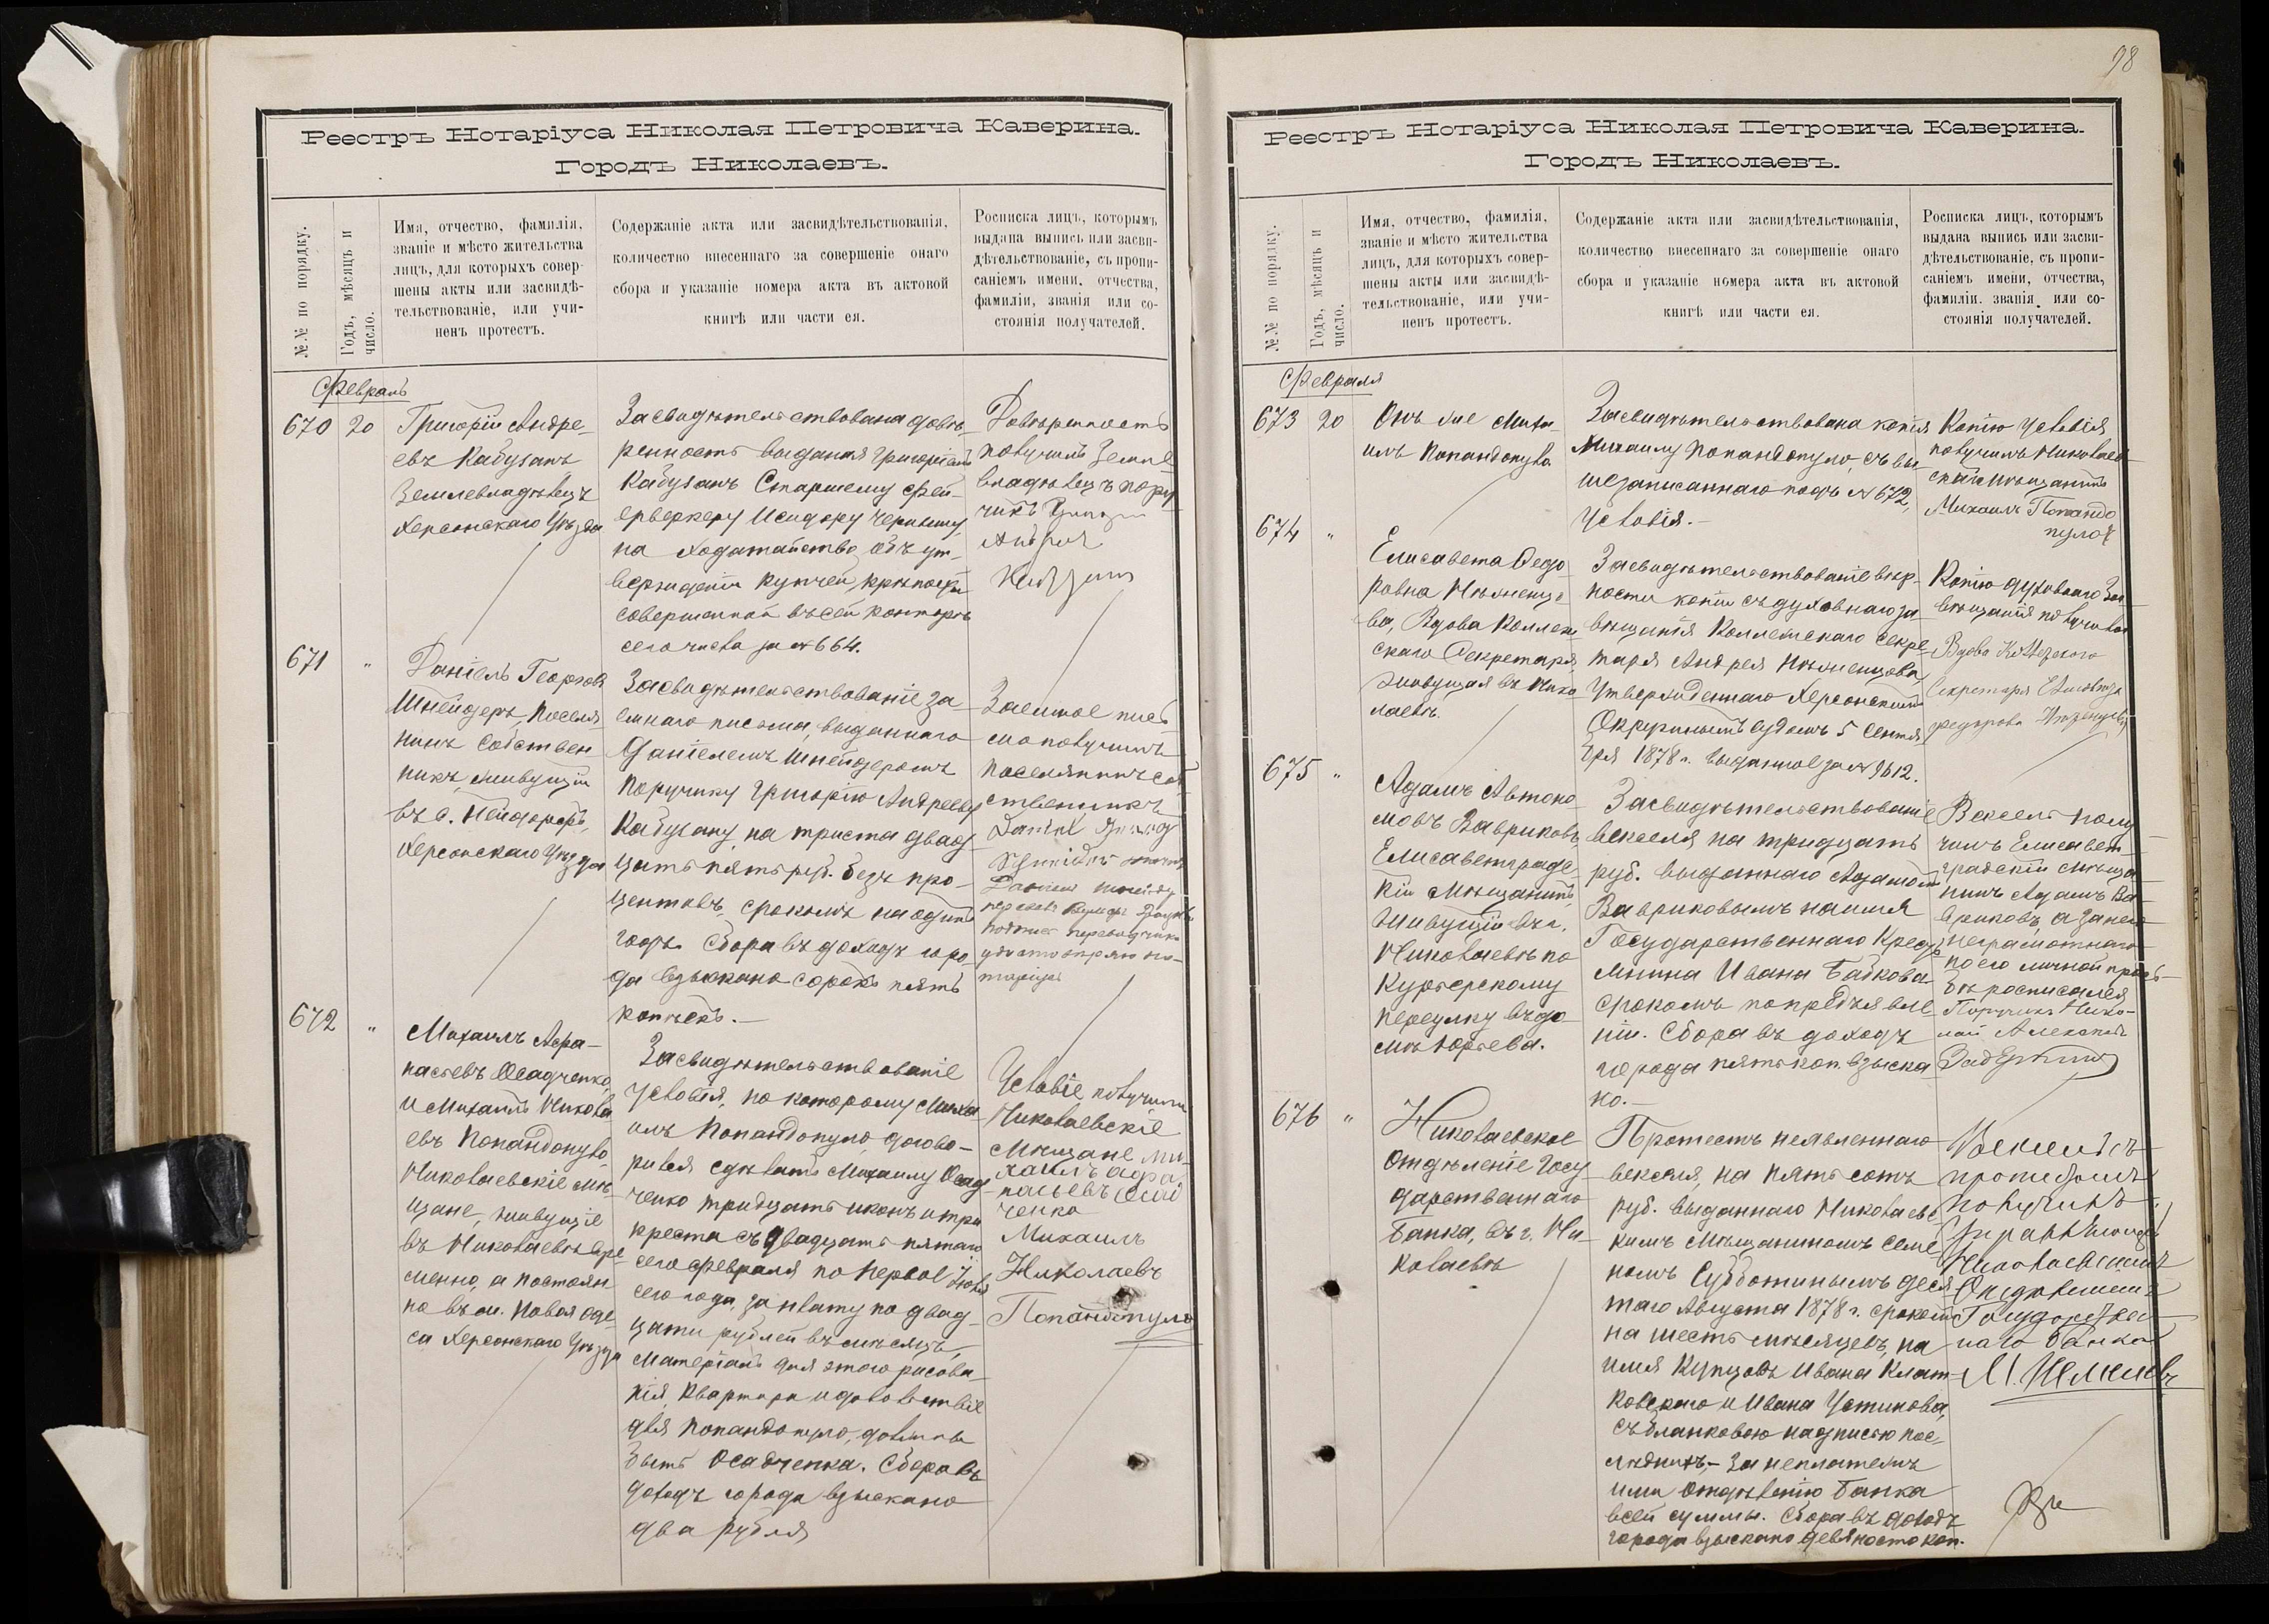 98
Реестръ Нотаріуса Николая Петровича Каверина.
Городъ Николаевъ.
№№ по порядку.
Годъ, мѣсяцъ и
число.
Имя, отчество, фамилія,
званіе и мѣсто жительства
лицъ, для которыхъ совер-
шены акты или засвидѣ-
тельствованіе, или учи-
ненъ протестъ.
Содержаніе акта или засвидѣтельствованія,
количество внесеннаго за совершеніе онаго
сбора и указаніе номера акта въ актовой
книгѣ или части ея.
Росписка лицъ, которымъ
выдана выпись или засви-
дѣтельствованіе, съ пропи-
саніемъ имени, отчества,
фамиліи, званія или со-
стоянія получателей.
Февраль
670
20
Григорій Андре-
евъ Кабузанъ
Землевладѣлецъ
Херсонскаго Уѣзда
Засвидѣтельствована довѣ-
ренность выданная Григоріемъ
Кабузанъ Старшему Фей-
ерверкеру Исидору
на ходатайство объ ут-
вержденіи купчей крѣпости
совершенной въ сей конторѣ
сего числа за № 664.
Довѣренность
получилъ Земле-
владѣлецъ пору-
чикъ
671
"
Даніелъ Георговъ
Шнейдеръ, поселя-
нинъ собствен-
никъ, живущій
въ с. Нейдорфѣ,
Херсонскаго Уѣзда
Засвидѣтельствованіе за-
емнаго письма, выданнаго
Даніелемъ Шнейдеромъ
Поручику Григорію Андрееву
Кабузану, на триста двад-
цать пять руб. безъ про-
центовъ, срокомъ на одинъ
годъ. Сбора въ доходъ горо-
да взыскано сорокъ пять
копѣекъ.—
Заемное пись-
мо получилъ
поселянинъ соб-
ственникъ
Daniel
Schneider
672
"
Михаилъ Афа-
насьевъ Осадченко,
и Михаилъ Никола-
евъ Попандопуло,
Николаевскіе мѣ-
щане, живущіе
въ Николаевѣ вре-
менно, а постоян-
но въ м. Новая Оде-
са Херсонскаго Уѣзда
Засвидѣтельствованіе
условія, по которому Миха-
илъ Попандопуло, догово-
рился сдѣлать Михаилу Осад-
ченко тридцать иконъ и три
креста съ двадцать пятаго
сего февраля по первое Іюля
сего года, за плату по двад-
цати рублей въ мѣсяцъ,
матеріалъ для этого рисова-
нія, квартира и довольствіе
для Попандопуло, должны
быть Осадченка. Сбора въ
доходъ города взыскано
два рубля
Условіе получили
Николаевскіе
Мѣщане Ми-
хаилъ Афа-
насьевъ Осад
ченко
Михаилъ
Николаевъ
Попандопуло
Реестръ Нотаріуса Николая Петровича Каверина.
Городъ Николаевъ.
№№ по порядку.
Годъ, мѣсяцъ и
число.
Имя, отчество, фамилія,
званіе и мѣсто жительства
лицъ, для которыхъ совер-
шены акты или засвидѣ-
тельствованіе, или учи-
ненъ протестъ.
Содержаніе акта или засвидѣтельствованія,
количество внесеннаго за совершеніе онаго
сбора и указаніе номера акта въ актовой
книгѣ или части ея.
Росписка лицъ, которымъ
выдана выпись или засви-
дѣтельствованіе, съ пропи-
саніемъ имени, отчества,
фамиліи, званія или со-
стоянія получателей.
Февраля
673
20
Онъ же Миха-
илъ Попандопуло
Засвидѣтельствована копія
Михаилу Попандопуло, съ вы-
шезаписаннаго подъ № 672,
условія.—
Копію условія
получилъ Николаев-
скій мѣщанинъ
Михаилъ Попандо
пуло
674
"
Елисавета Ѳедо-
ровна
Вдова Коллеж-
скаго Секретаря,
живущая въ Нико-
лаевѣ.
Засвидѣтельствованіе вѣр-
ности копіи съ духовнаго за-
вѣщанія Коллежскаго Секре-
таря Андрея
утвержденнаго Херсонскимъ
Окружнымъ Судомъ 5 Сентя-
бря 1878 г. выданное за № 9612.
Копію духовнаго за-
вѣщанія получила
Вдова
Секретаря
675
"
Адамъ Автоно-
мовъ Вавриковъ,
Елисаветградс-
кій мѣщанинъ,
живущій въ г.
Николаевѣ по
Курьерскому
переулку въ до-
мѣ Юрьева.
Засвидѣтельствованіе
векселя на тридцать
руб. выданнаго Адамомъ
Вавриковымъ на имя
Государственнаго Кресть-
янина Ивана Байкова
срокомъ по предъявле-
ніи. Сбора въ доходъ
города пять коп. взыска-
но.—
Вексель полу-
чилъ Елисавет-
градскій мѣща-
нинъ Адамъ Ва-
вриковъ, а за него
неграмотнаго
по его личной прось-
бѣ росписался
Поручикъ Нико-
лай
676
"
Николаевское
Отдѣленіе Госу-
дарственнаго
Банка, въ г. Ни-
колаевѣ
Протестъ неявленнаго
векселя, на пять сотъ
руб. выданнаго Николаевс-
кимъ мѣщаниномъ Семе-
номъ Субботинымъ деся-
таго Августа 1878 г. срокомъ
на шесть мѣсяцевъ, на
имя Купцовъ Ивана
и Ивана Устинова,
съ бланковою надписью пос-
лѣднихъ,— за неплатежъ
ими Отдѣленію Банка
всей суммы. Сбора въ доходъ
города взыскано девяносто коп.
Вексель съ
протестомъ
получилъ
Управляющій
Николаевскимъ
Отдѣленіемъ
Государствен-
наго банка